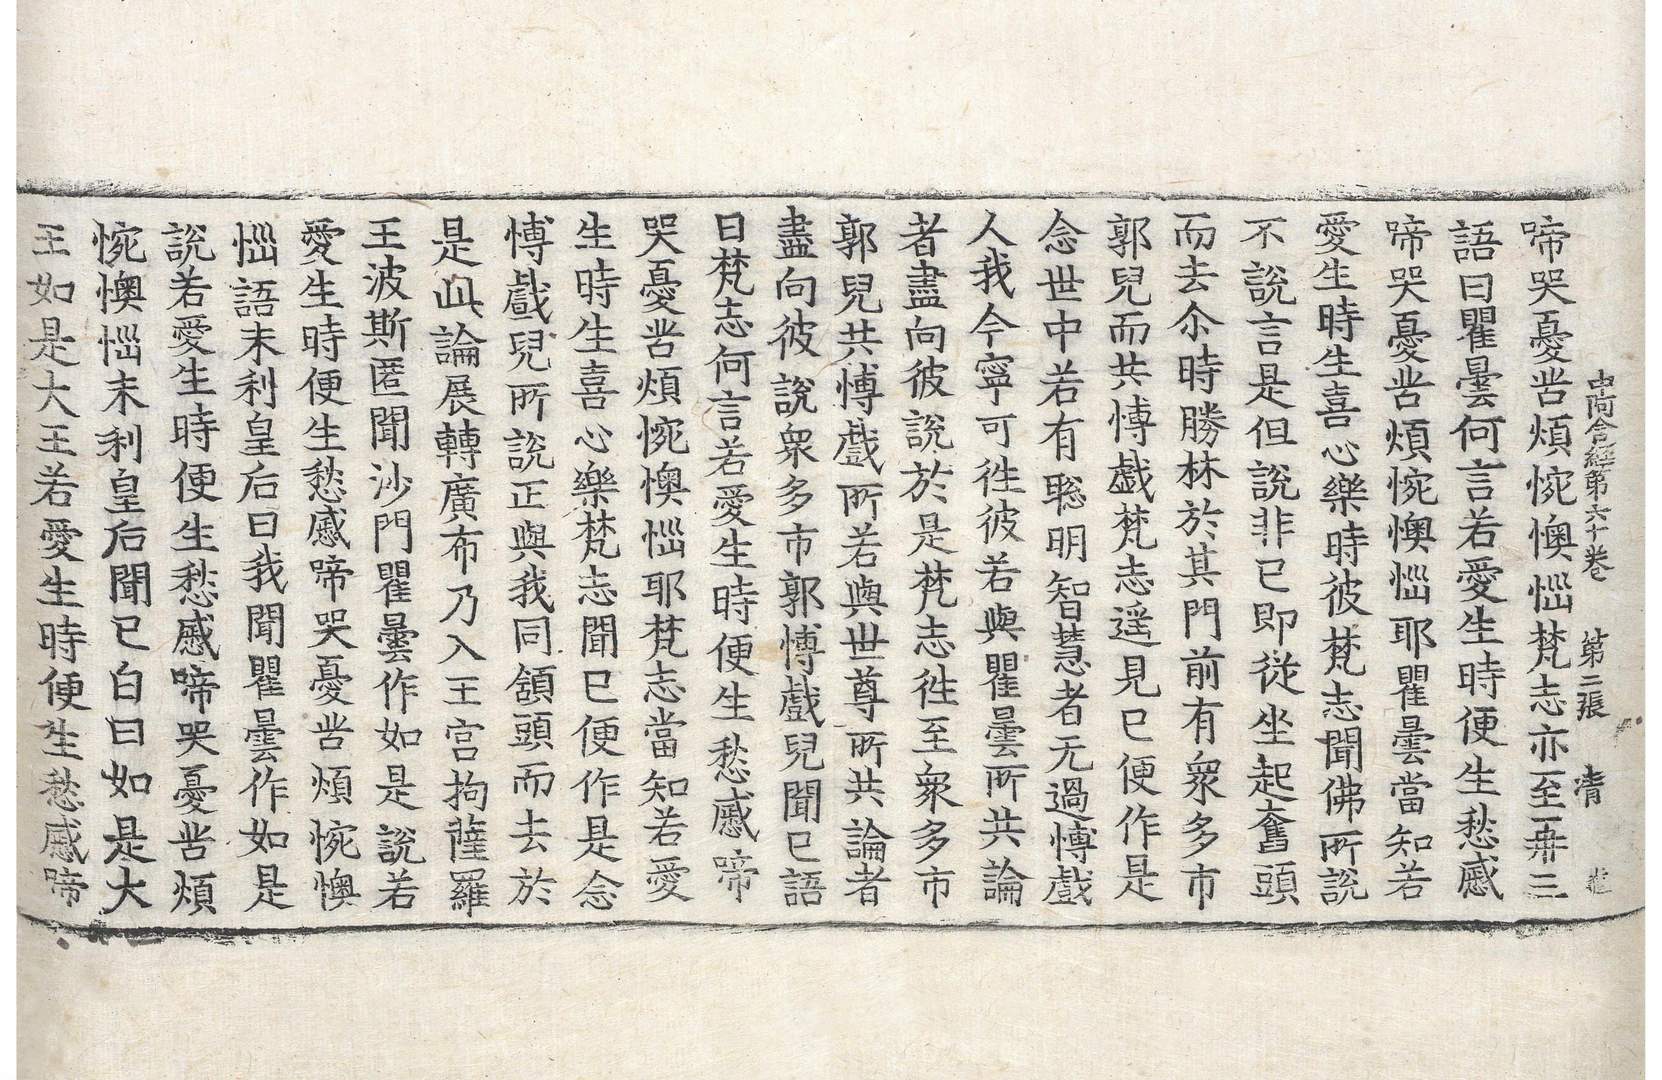 中阿含經第六十卷 第二張 淸
啼哭憂苦煩惋懊惱梵志亦至再三
語曰瞿曇何言若愛生時便生愁慼
啼哭憂苦煩惋懊惱耶瞿曇當知若
愛生時生喜心樂時彼梵志聞佛所說
不說言是但說非已即從坐起奮頭
而去尒時勝林於其門前有衆多市
郭兒而共博戲梵志遥見已便作是
念世中若有聡明智慧者无過博戲
人我今寧可徃彼若與瞿曇所共論
者盡向彼說於是梵志徃至衆多市
郭兒共博戲所若與世尊所共論者
盡向彼說衆多市郭博戲兒聞已語
曰梵志何言若愛生時便生愁慼啼
哭憂苦煩惋懊惱耶梵志當知若愛
生時生喜心樂梵志聞已便作是念
博戲兒所說正與我同頷頭而去於
是此論展轉廣布乃入王宮拘薩羅
王波斯匿聞沙門瞿曇作如是說若
愛生時便生愁慼啼哭憂苦煩惋懊
惱語末利皇后曰我聞瞿曇作如是
說若愛生時便生愁慼啼哭憂苦煩
惋懊惱末利皇后聞已白曰如是大
王如是大王若愛生時便生愁慼啼